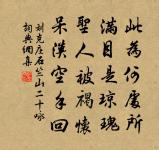 此為何處所
滿目是瓊瑰
聖人被褐懷
呆漢空手回
刘克庄石竺山二十咏
詞典網集